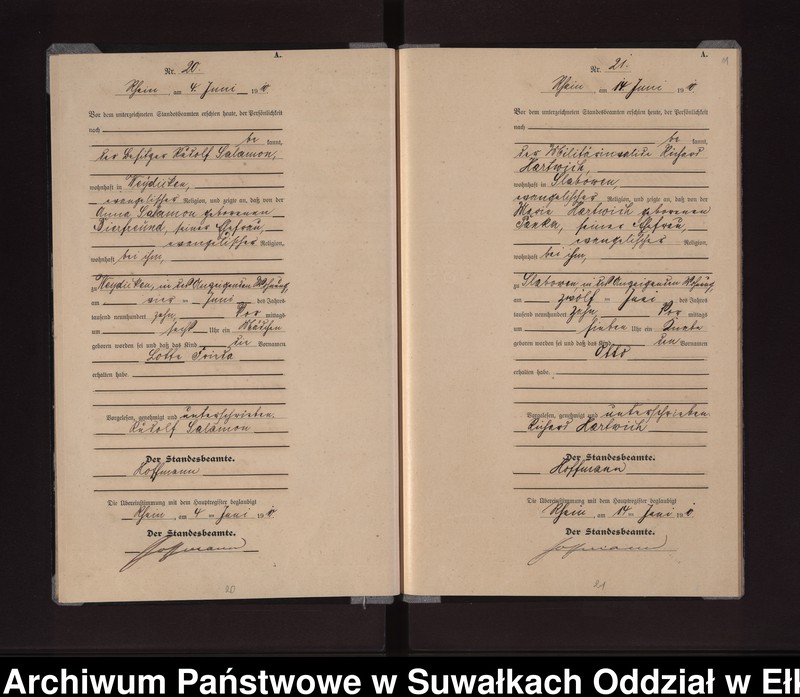 A.
Nr. 20.
Rhein, am 4. Juni 1910.
Vor dem unterzeichneten Standesbeamten erschien heute, der Persönlichkeit
nach
be kannt,
der Besitzer Rudolf Salamon,
wohnhaft in Weydicken,
evangelischer Religion, und zeigte an, daß von der
Anna Salamon geborenen
Tierfreund, seiner Ehefrau,
evangelischer Religion,
wohnhaft bei ihm,
zu Weydicken, in des Anzeigenden Wohnung
am vier = Juni des Jahres
tausend neunhundert zehn, Vor mittags
um sechs Uhr ein Mädchen
geboren worden sei und daß das Kind den Vornamen
Lotte Frida
erhalten habe.
Vorgelesen, genehmigt und unterschrieben.
Rudolf Salamon
Der Standesbeamte.
Hoffmann
Die Übereinstimmung mit dem Hauptregister beglaubigt
Rhein, am 4 = Juni 1910.
Der Standesbeamte.
Hoffmann
20
A.
Nr. 21.
Rhein, am 14 Juni 1910.
Vor dem unterzeichneten Standesbeamten erschien heute, der Persönlichkeit
nach
be kannt,
der Militärinvalide Richard
Hartwich,
wohnhaft in Slabowen,
evangelischer Religion, und zeigte an, daß von der
Marie Hartwich geborenen
seiner Ehefrau,
evangelischer Religion,
wohnhaft bei ihm,
zu Slabowen, in des Anzeigenden Wohnung
am zwölf = Juni des Jahres
tausend neunhundert zehn, Vor mittags
um sieben Uhr ein Knabe
geboren worden sei und daß das Kind den Vornamen
Otto
erhalten habe.
Vorgelesen, genehmigt und unterschrieben
Richard Hartwich
Der Standesbeamte.
Hoffmann
Die Übereinstimmung mit dem Hauptregister beglaubigt
Rhein, am 14 = Juni 1910.
Der Standesbeamte.
Hoffmann
21
Archiwum Państwowe w Suwałkach Oddział w Eł